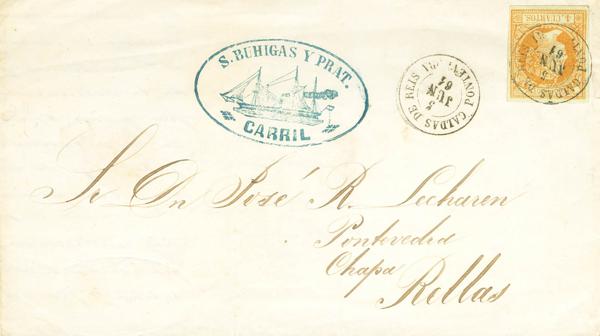 S. BUHIGAS Y PRAT.
CARRIL
CALDAS DE REIS PONTEVEDRA
5
JUN
61
4 CUARTOS
CALDAS DE
PONT
5
JUN
61
Sr Dn José R. Lecharen
Pontevedra
Chapa
Rellas